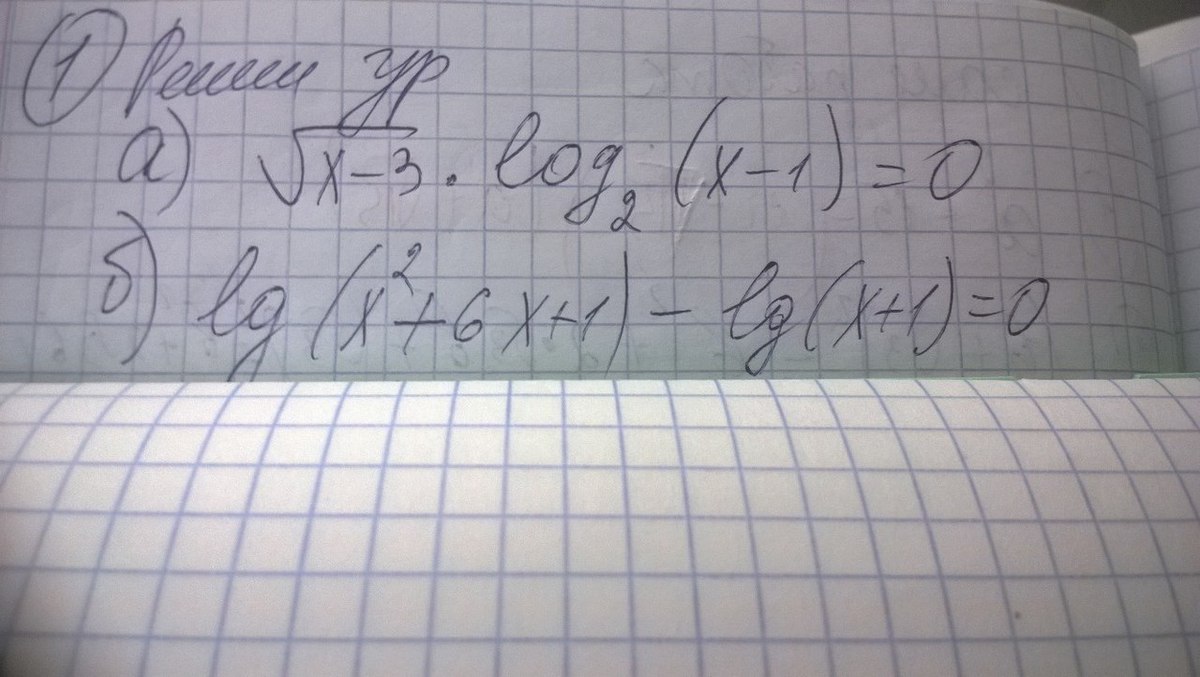 ① Реши ур
а) √(x-3) · log₂ (x-1) = 0
б) lg (x²+6x+1) - lg (x+1) = 0